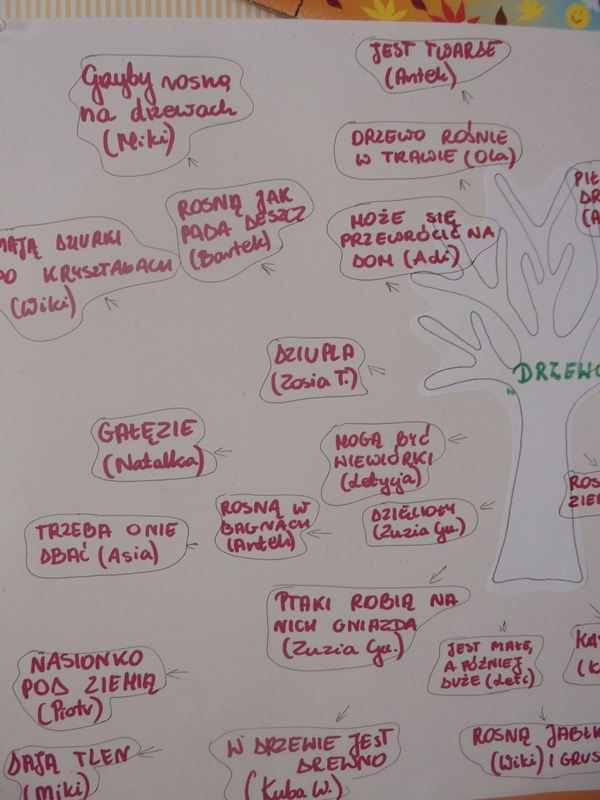 Grzyby rosną
na drzewach
(Miki)
JEST TWARDE
(Antek)
DRZEWO ROŚNIE
W TRAWIE (Ola)
ROSNĄ JAK
PADA DESZCZ
(Bartek)
MOŻE SIĘ
PRZEWRÓCIĆ NA
DOM (Adi)
MAJĄ DZIURKI
PO KRYSZTAŁACH
(Wiki)
DZIUPLA
(Zosia T.)
"DRZEWO
GAŁĘZIE
(Natalka)
MOGĄ BYĆ
WIEWIÓRKI
(Letycja)
ROSNĄ W
BAGNACH
(Antek)
DZIĘCIOŁ
(Zuzia Gu.)
TRZEBA O NIE
DBAĆ (Asia)
PTAKI ROBIĄ NA
NICH GNIAZDA
(Zuzia Gu.)
JEST MAŁE,
A PÓŹNIEJ
DUŻE (Leti)
NASIONKO
POD ZIEMIĄ
(Piotr)
DAJĄ TLEN
(Miki)
W DRZEWIE JEST
DREWNO
(Kuba W.)
ROSNĄ JABŁK
(Wiki) I GRUS